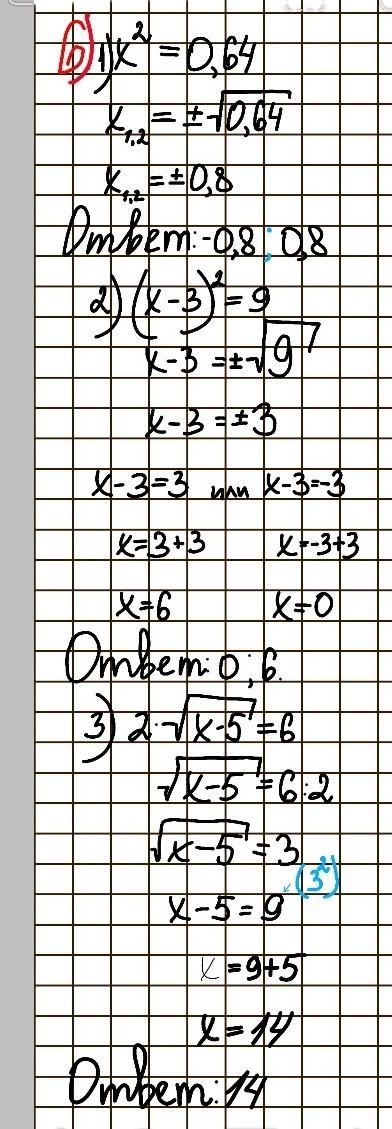 б) 1) x² = 0,64
x₁,₂ = ±√0,64
x₁,₂ = ±0,8
Ответ: -0,8 ; 0,8
2) (x-3)² = 9
x-3 = ±√9
x-3 = ±3
x-3=3 или x-3=-3
x=3+3 x=-3+3
x=6 x=0
Ответ: 0 ; 6.
3) 2·√x-5 = 6
√x-5 = 6:2
√x-5 = 3
x-5 = 9 (3²)
x = 9+5
x = 14
Ответ: 14